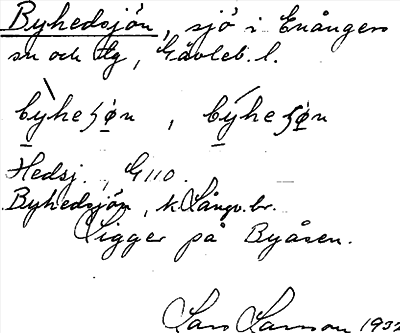 Byhedsjön, sjö i Enångers
sn och Hg, Gävleb. l.
Hedsj., G 110.
Byhedsjön, k. Långv. br.
Ligger på Byåsen.
Lars Larsson 1932